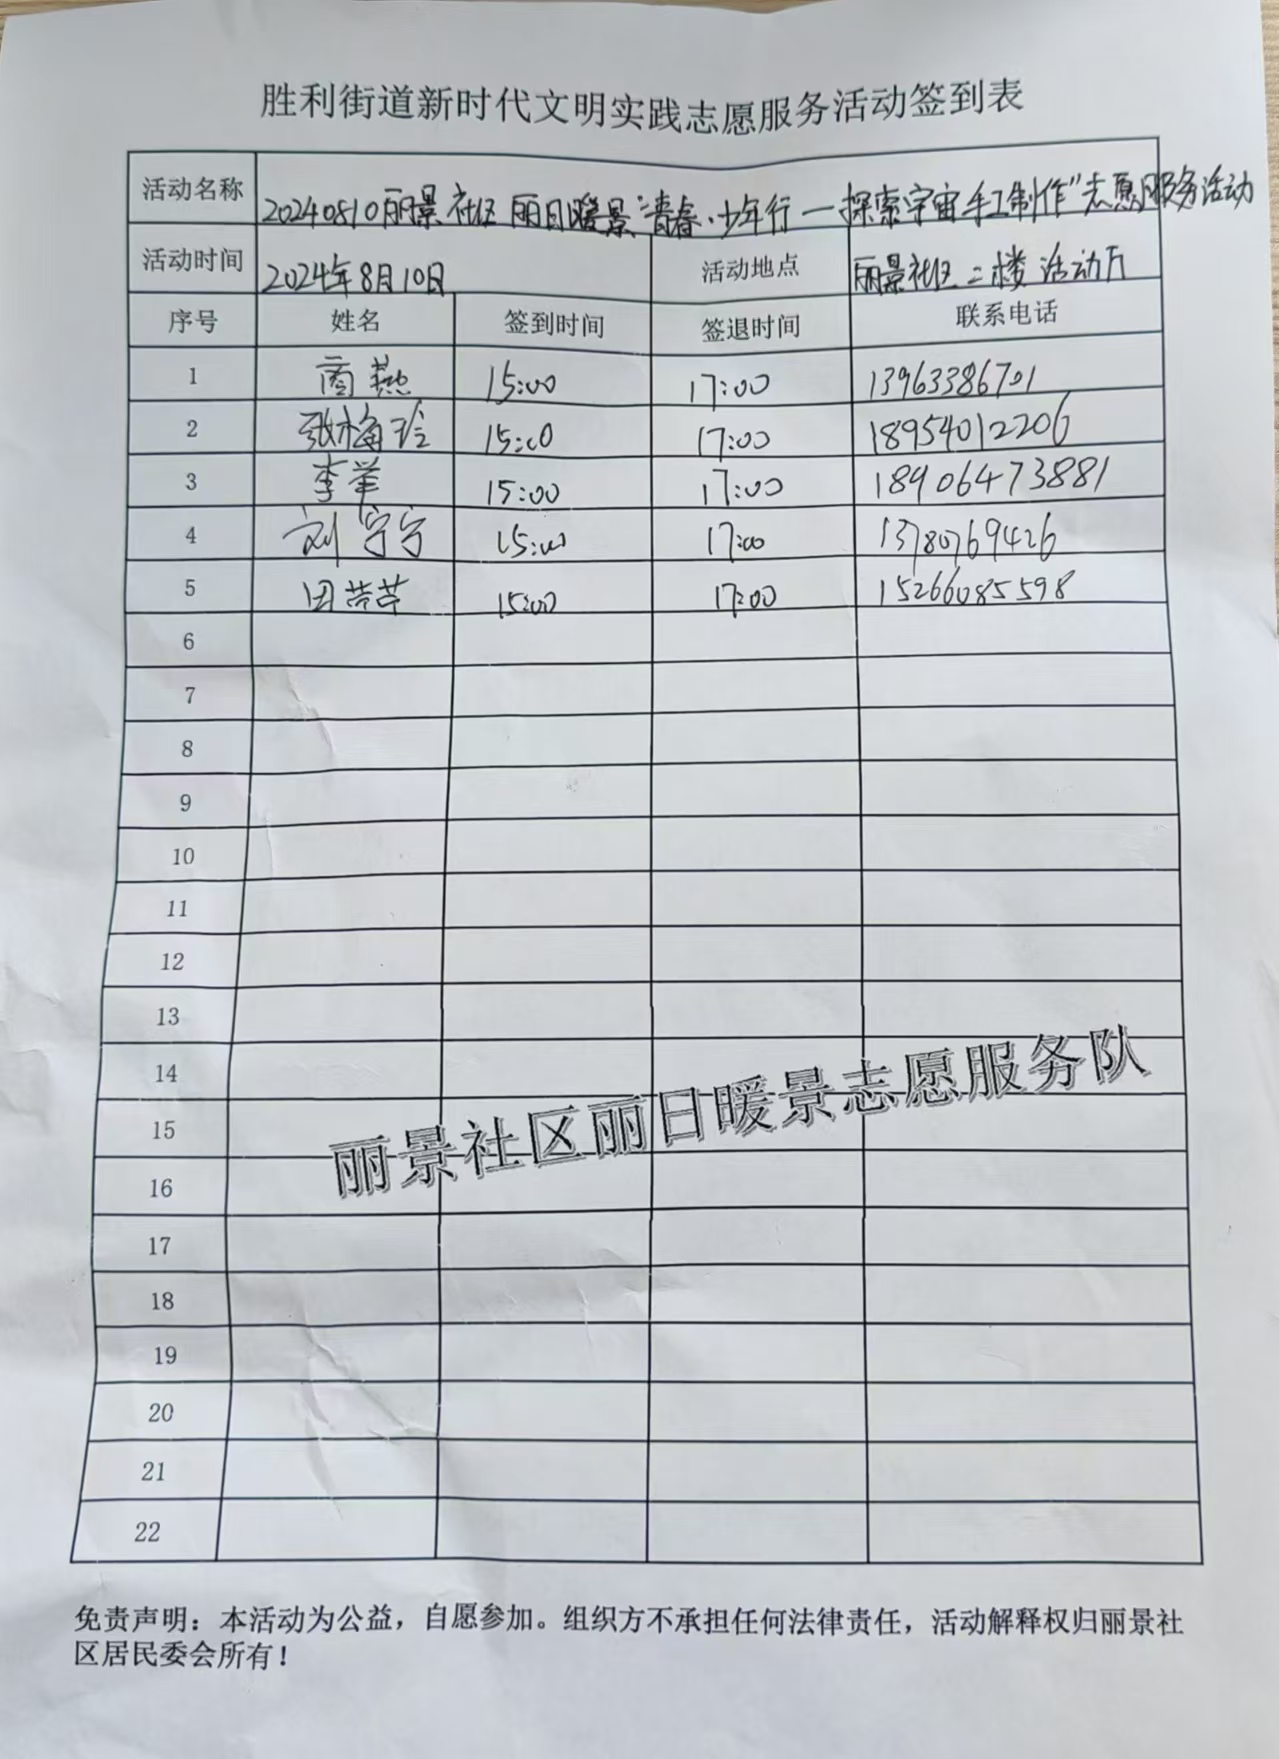 胜利街道新时代文明实践志愿服务活动签到表
活动名称 20240810丽景社区丽日暖景"青春·少年行—探索宇宙手工制作"志愿服务活动
活动时间 2024年8月10日 活动地点 丽景社区二楼活动厅
序号 姓名 签到时间 签退时间 联系电话
1 商燕 15:00 17:00 13963386701
2 张梅玲 15:00 17:00 18954012206
3 李举 15:00 17:00 18906473881
4 刘宁宁 15:00 17:00 13780769426
5 田芸芸 15:00 17:00 15266085598
6
7
8
9
10
11
12
13
14
15
16
17
18
19
20
21
22
丽景社区丽日暖景志愿服务队
免责声明：本活动为公益，自愿参加。组织方不承担任何法律责任，活动解释权归丽景社
区居民委会所有！